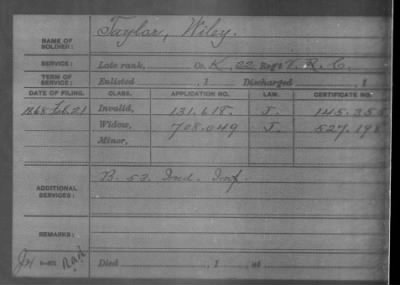 NAME OF SOLDIER: Taylor, Wiley.
SERVICE: Late rank, Co. K, 22 Reg't V. R. C.
TERM OF SERVICE: Enlisted , 1 Discharged , 1
DATE OF FILING. CLASS. APPLICATION NO. LAW. CERTIFICATE NO.
1868 Feb. 21 Invalid, 131.618. J. 145.355
Widow, 708.049 J. 527.198
Minor,
ADDITIONAL SERVICES: B. 53. Ind. Inf
REMARKS:
Died , 1 , at